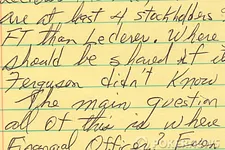 are at best 4 stockholders
FT than Lederer. Where
should be shared if i
Ferguson didn't know
The main question
all of this is where
Financial Officer? Even